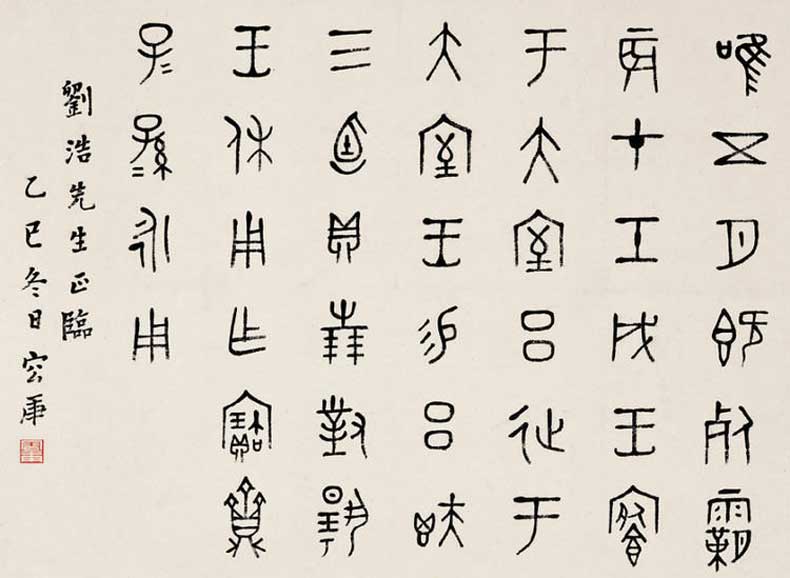 唯五月既死霸
辰才壬戌王
于大室呂延于
大室王易呂
三卣貝對揚
王休用乍寶
子=孫=永用
劉浩先生正臨
乙巳冬日容庚